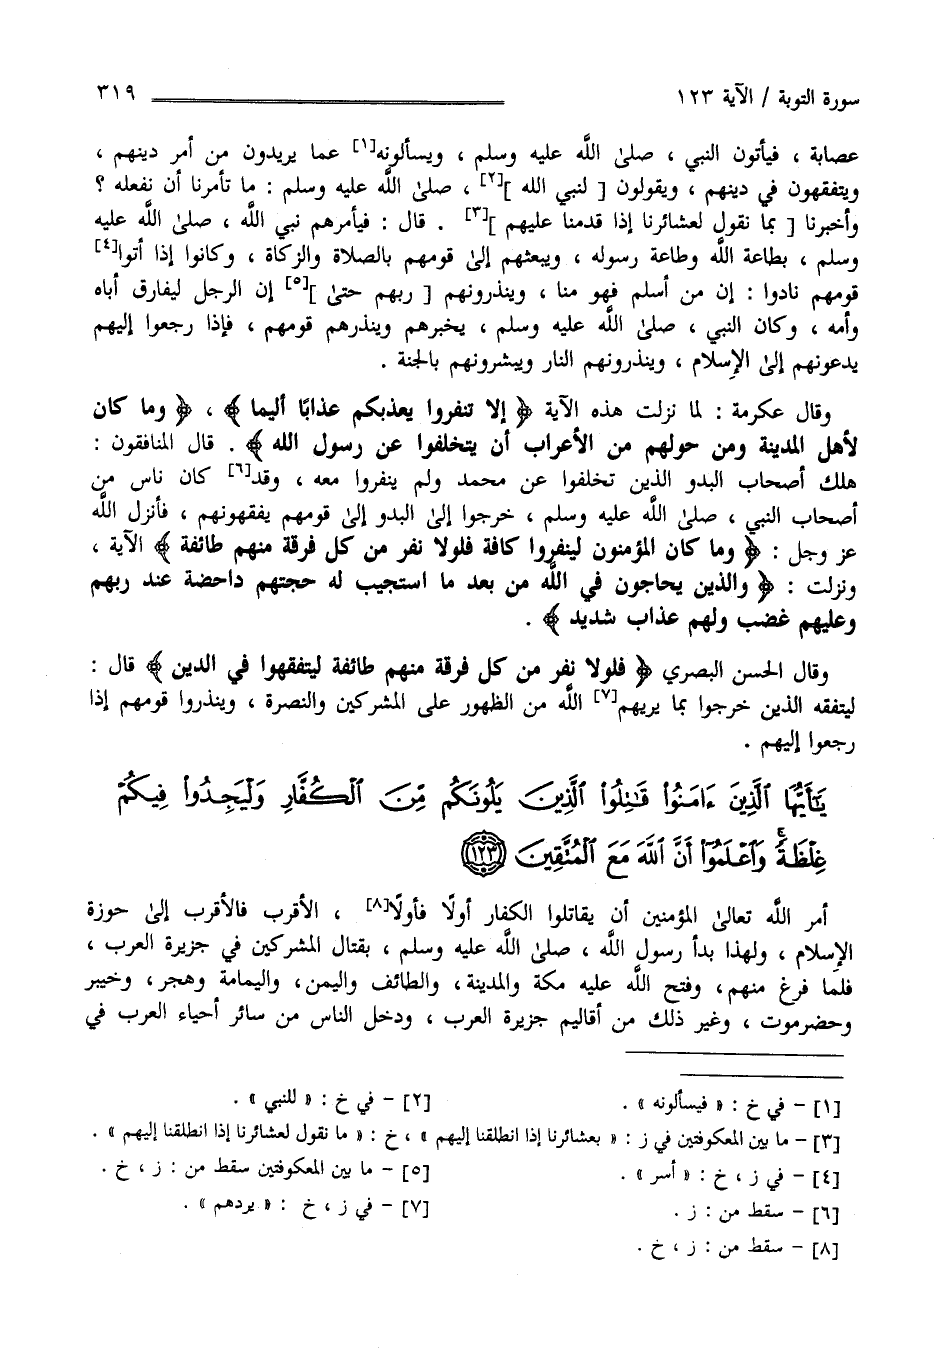 سورة التوبة / الآية ١٢٣ ٣١٩
عصابة ، فيأتون النبي ، صلىٰ اللَّه عليه وسلم ، ويسألونه[١] عما يريدون من أمر دينهم ،
ويتفقهون في دينهم ، ويقولون [ لنبي الله ][٢] ، صلىٰ اللَّه عليه وسلم : ما تأمرنا أن نفعله ؟
وأخبرنا [ بما نقول لعشائرنا إذا قدمنا عليهم ][٣] . قال : فيأمرهم نبي اللَّه ، صلىٰ اللَّه عليه
وسلم ، بطاعة اللَّه وطاعة رسوله ، ويبعثهم إلىٰ قومهم بالصلاة والزكاة ، وكانوا إذا أتوا[٤]
قومهم نادوا : إن من أسلم فهو منا ، وينذرونهم [ ربهم حتىٰ ][٥] إن الرجل ليفارق أباه
وأمه ، وكان النبي ، صلىٰ اللَّه عليه وسلم ، يخبرهم وينذرهم قومهم ، فإذا رجعوا إليهم
يدعونهم إلىٰ الإسلام ، وينذرونهم النار ويبشرونهم بالجنة .
وقال عكرمة : لما نزلت هذه الآية ﴿ إلا تنفروا يعذبكم عذابًا أليما ﴾ ، ﴿ وما كان
لأهل المدينة ومن حولهم من الأعراب أن يتخلفوا عن رسول الله ﴾ . قال المنافقون :
هلك أصحاب البدو الذين تخلفوا عن محمد ولم ينفروا معه ، وقد[٦] كان ناس من
أصحاب النبي ، صلىٰ اللَّه عليه وسلم ، خرجوا إلىٰ البدو إلىٰ قومهم يفقهونهم ، فأنزل اللَّه
عز وجل : ﴿ وما كان المؤمنون لينفروا كافة فلولا نفر من كل فرقة منهم طائفة ﴾ الآية ،
ونزلت : ﴿ والذين يحاجون في اللَّه من بعد ما استجيب له حجتهم داحضة عند ربهم
وعليهم غضب ولهم عذاب شديد ﴾ .
وقال الحسن البصري ﴿ فلولا نفر من كل فرقة منهم طائفة ليتفقهوا في الدين ﴾ قال :
ليتفقه الذين خرجوا بما يريهم[٧] اللَّه من الظهور على المشركين والنصرة ، وينذروا قومهم إذا
رجعوا إليهم .
يَٰٓأَيُّهَا ٱلَّذِينَ ءَامَنُوا۟ قَٰتِلُوا۟ ٱلَّذِينَ يَلُونَكُم مِّنَ ٱلْكُفَّارِ وَلْيَجِدُوا۟ فِيكُمْ
غِلْظَةً ۚ وَٱعْلَمُوٓا۟ أَنَّ ٱللَّهَ مَعَ ٱلْمُتَّقِينَ ١٢٣
أمر اللَّه تعالىٰ المؤمنين أن يقاتلوا الكفار أولًا فأولًا[٨] ، الأقرب فالأقرب إلىٰ حوزة
الإسلام ، ولهذا بدأ رسول اللَّه ، صلىٰ اللَّه عليه وسلم ، بقتال المشركين في جزيرة العرب ،
فلما فرغ منهم، وفتح اللَّه عليه مكة والمدينة، والطائف واليمن، واليمامة وهجر، وخيبر
وحضرموت ، وغير ذلك من أقاليم جزيرة العرب ، ودخل الناس من سائر أحياء العرب في
[١] - في خ : « فيسألونه » . [٢] - في خ : « للنبي » .
[٣] - ما بين المعكوفتين في ز : « بعشائرنا إذا انطلقنا إليهم » ، خ : « ما نقول لعشائرنا إذا انطلقنا إليهم » .
[٤] - في ز ، خ : « أسر » . [٥] - ما بين المعكوفتين سقط من : ز ، خ .
[٦] - سقط من : ز . [٧] - في ز ، خ : « يردهم » .
[٨] - سقط من : ز ، خ .